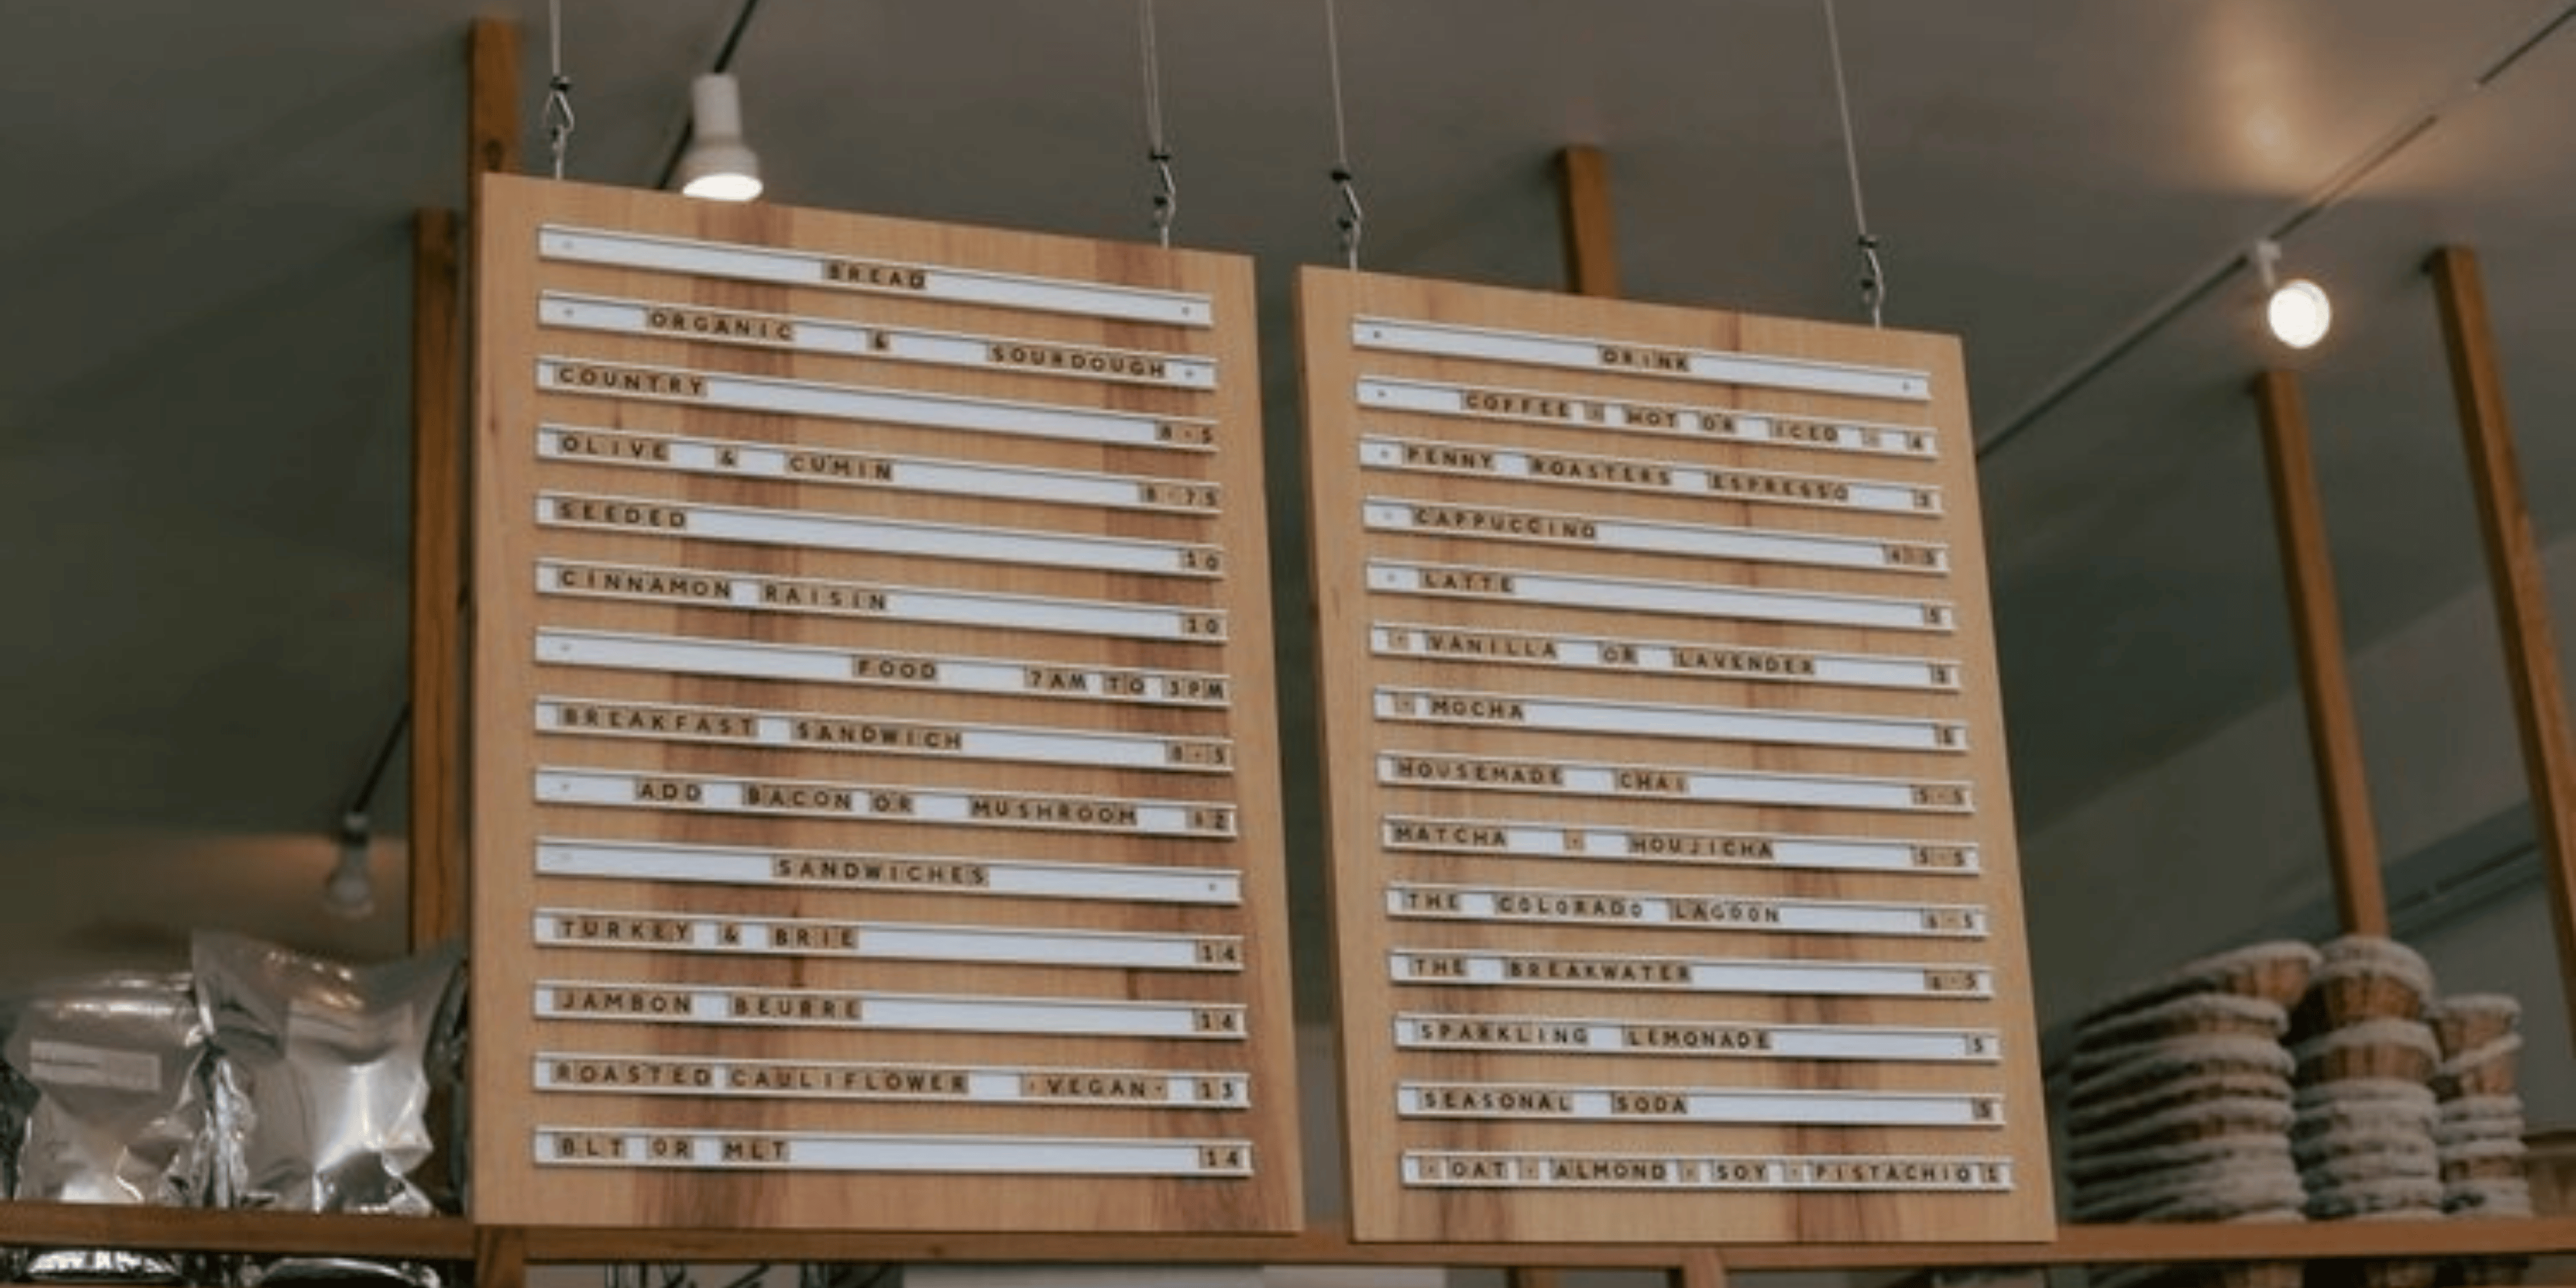 BREAD
ORGANIC & SOURDOUGH
COUNTRY 8-5
OLIVE & CUMIN 8-75
SEEDED 10
CINNAMON RAISIN 10
FOOD 7AM TO 3PM
BREAKFAST SANDWICH 8-5
ADD BACON OR MUSHROOM
SANDWICHES
TURKEY & BRIE 14
JAMBON BEURRE 14
ROASTED CAULIFLOWER ·VEGAN· 13
BLT OR MLT 14
DRINK
COFFEE - HOT OR ICED - 4
PENNY ROASTERS ESPRESSO
CAPPUCCINO
LATTE 5
- VANILLA OR LAVENDER
- MOCHA
HOUSEMADE CHAI 5-5
MATCHA - HOUJICHA 5-5
THE COLORADO LAGOON
THE BREAKWATER
SPARKLING LEMONADE 5
SEASONAL SODA 5
- OAT - ALMOND - SOY - PISTACHIO 1